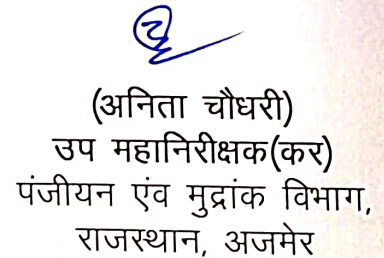 (अनिता चौधरी)
उप महानिरीक्षक(कर)
पंजीयन एंव मुद्रांक विभाग,
राजस्थान, अजमेर